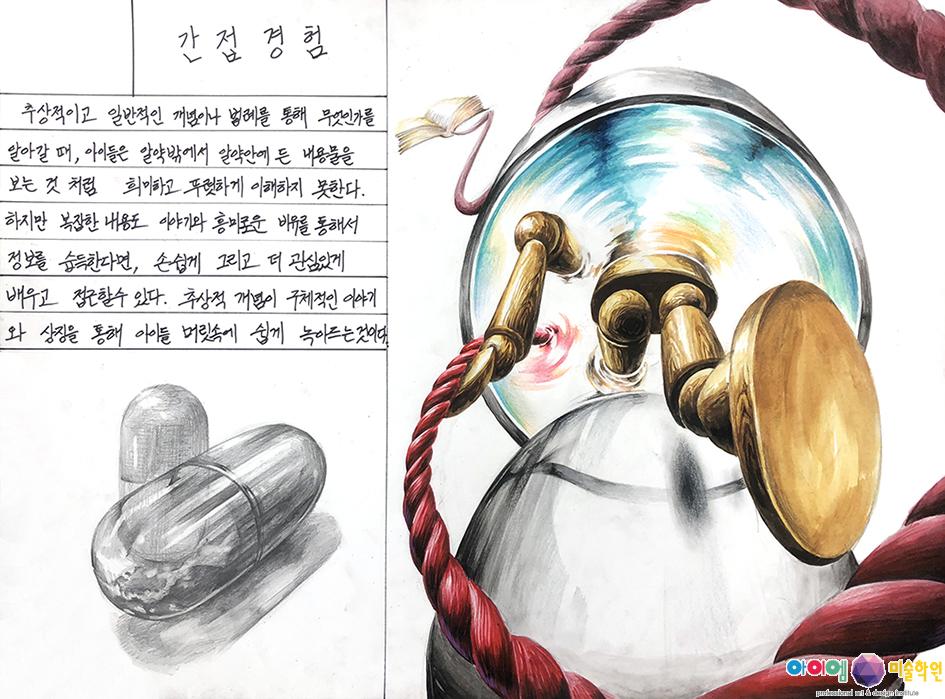 간접경험
추상적이고 일반적인 개념이나 법례를 통해 무엇인가를
알아갈 때, 아이들은 알약밖에서 알약안에 든 내용물을
보는 것 처럼 희미하고 뚜렷하게 이해하지 못한다.
하지만 복잡한 내용도 이야기와 흥미로운 비유를 통해서
정보를 습득한다면, 손쉽게 그리고 더 관심있게
배우고 접근할수 있다. 추상적 개념이 구체적인 이야기
와 상징을 통해 아이들 머릿속에 쉽게 녹아드는것이다.
아이엠 미술학원
professional art & design institute